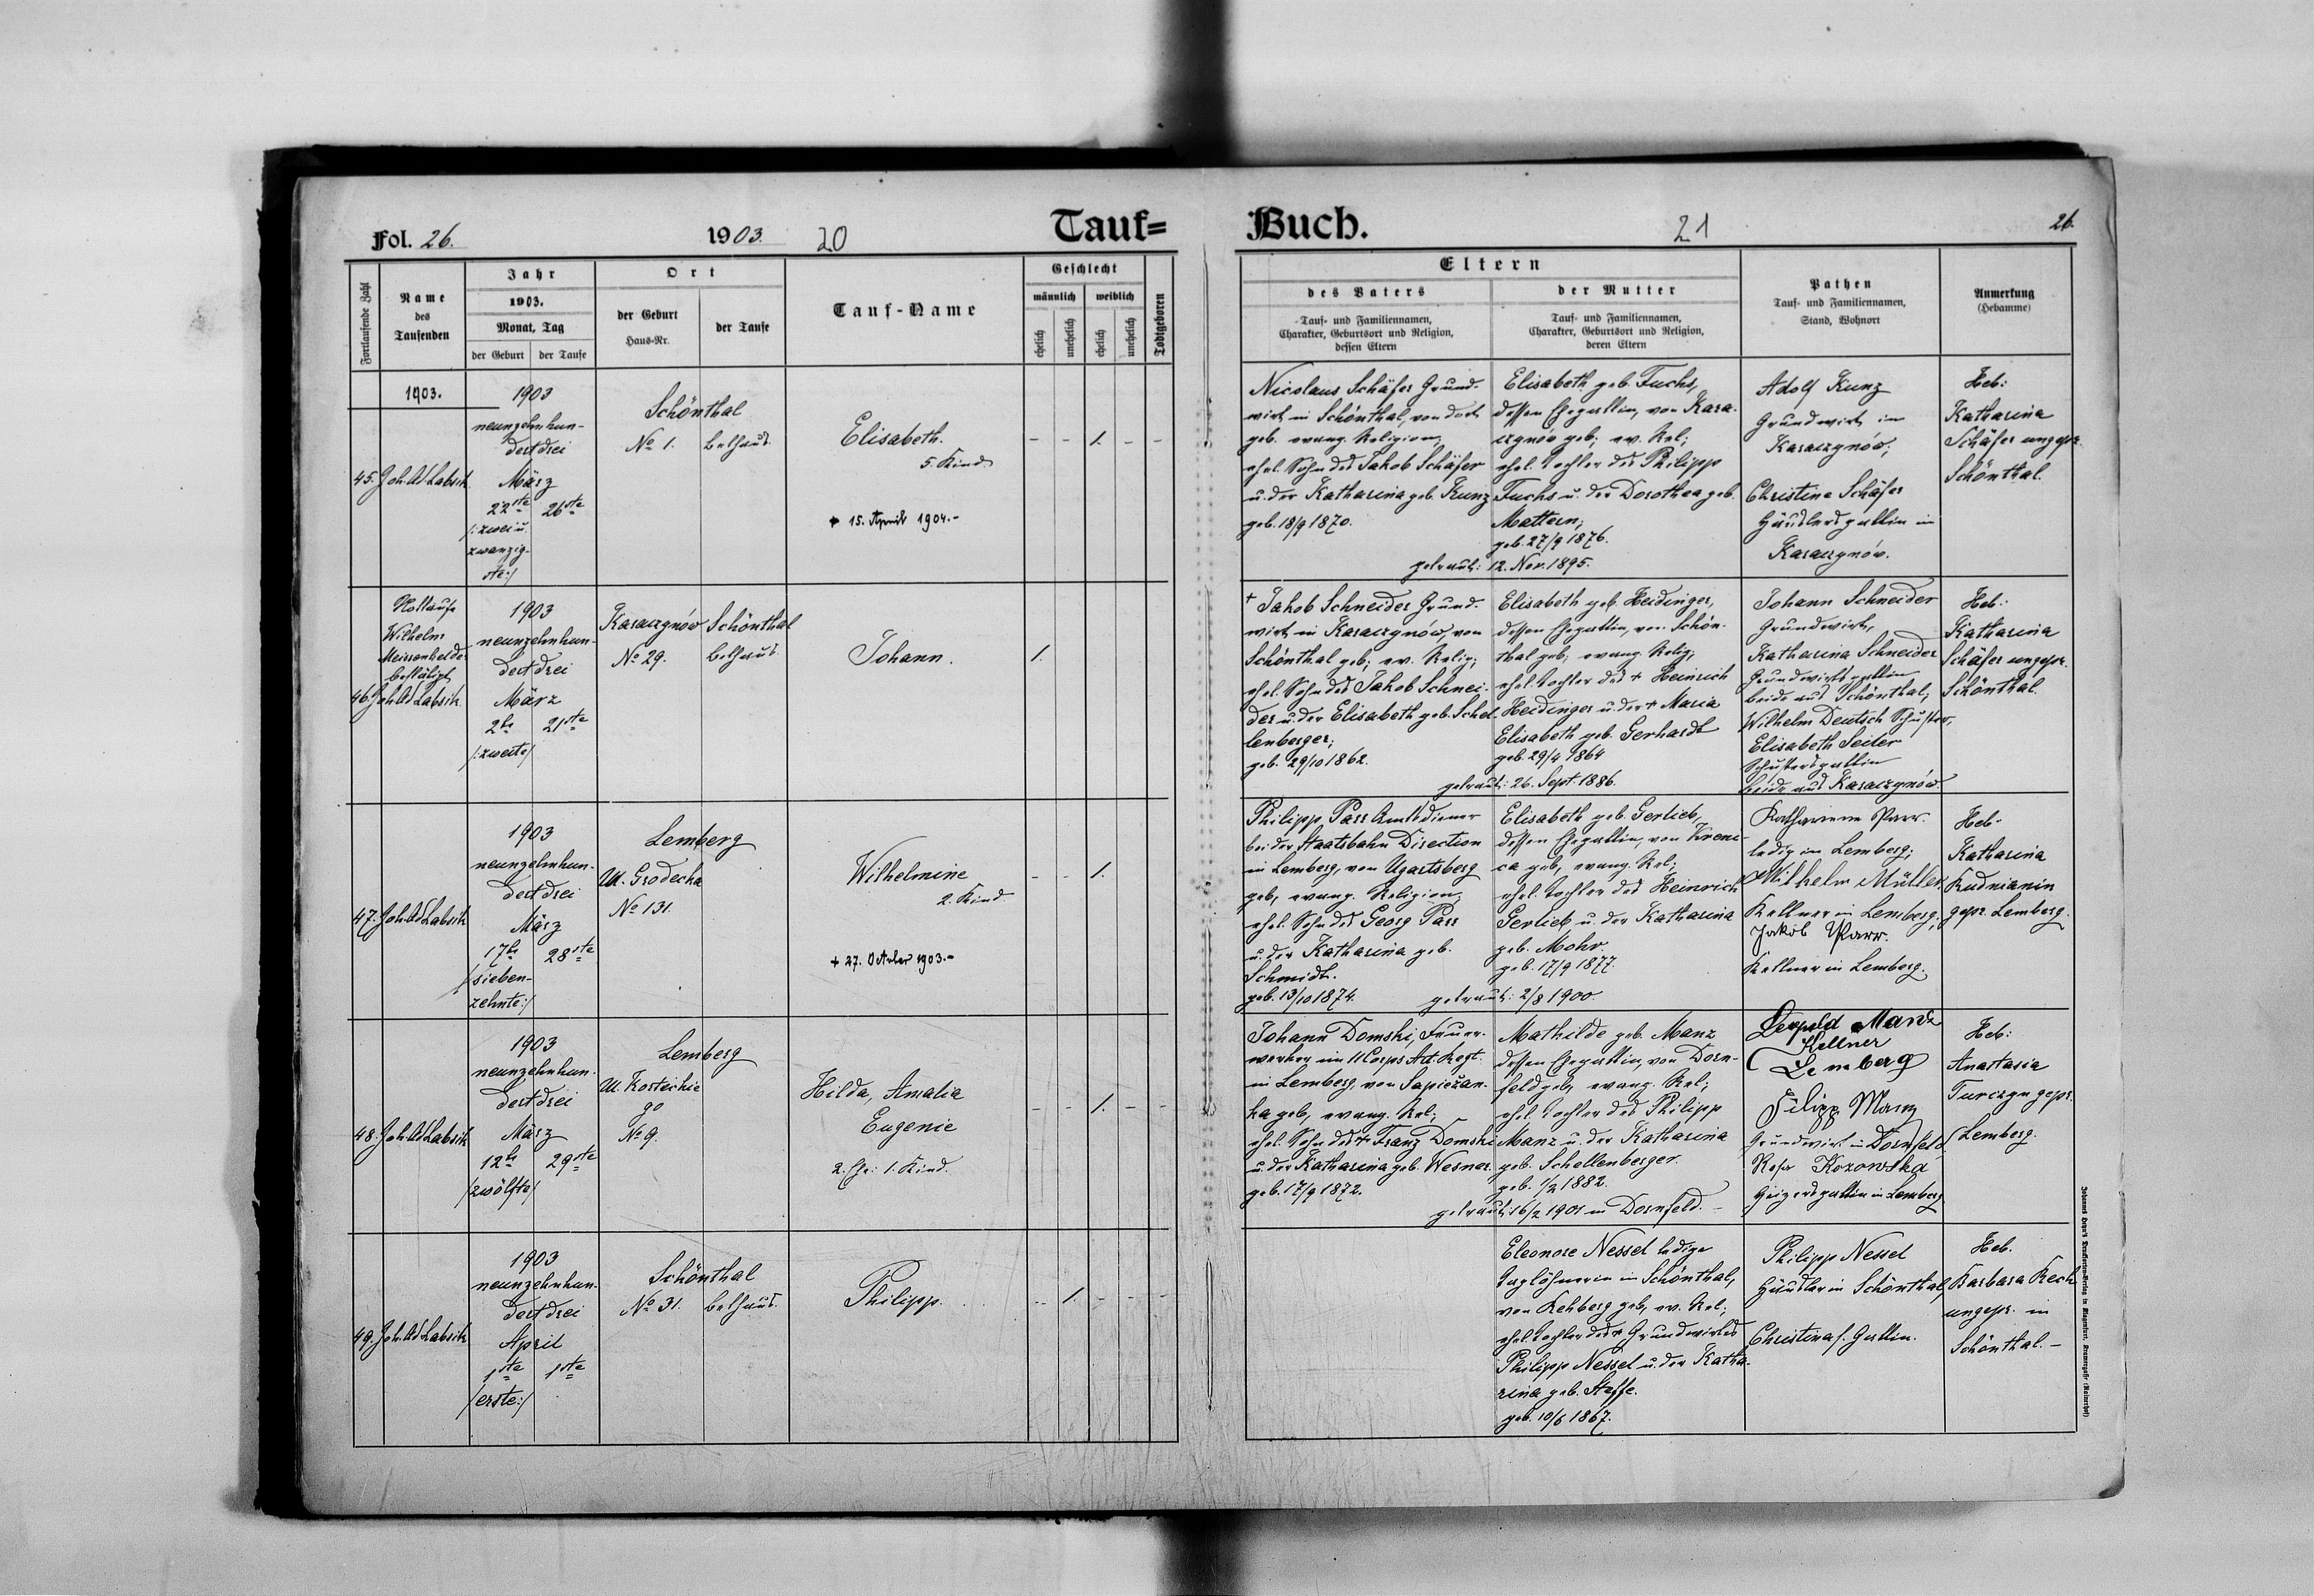 Fol. 26.
1903.
20
Tauf=
Fortlaufende Zahl
Name
des
Taufenden
Jahr
1903.
Monat, Tag
der Geburt
der Taufe
Ort
der Geburt
Haus-Nr.
der Taufe
Tauf-Name
Geschlecht
männlich
weiblich
ehelich
unehelich
ehelich
unehelich
Todtgeboren
1903.
45. Joh. Ad. Labsik
1903
neunzehnhun-
dertdrei
März
22ste 26ste
/: zwei u.
zwanzig-
ste :/
Schönthal
No 1. Bethaus.
Elisabeth.
5. Kind
+ 15. April 1904.-
- - 1. - -
Nottaufe
Wilhelm
bestätigt
46. Joh. Ad. Labsik.
1903
neunzehnhun-
dertdrei
März
2te 21ste
/: zweite /
Karaczynów Schönthal
No 29. Bethaus.
Johann.
1.
47. Joh. Ad. Labsik
1903
neunzehnhun-
dertdrei
März
17te 28ste
/ sieben-
zehnte :/
Lemberg
Ul. Grodecka
No 131.
Wilhelmine
2. Kind
+ 27. October 1903.-
- - 1.
48. Joh. Ad. Labsik
1903
neunzehnhun-
dertdrei
März
12te 29ste
/ zwölfte /
Lemberg
Ul. Kosteckie
go
No 9.
Hilda, Amalia
Eugenie
2. Ehe: 1. Kind.
- - 1. - -
49. Joh. Ad. Labsik
1903
neunzehnhun-
dertdrei
April
1ste 1ste
/ erste :/
Schönthal
No 31. Bethaus.
Philipp.
- 1. - - -
Buch.
21
26.
Eltern
des Vaters
Tauf- und Familiennamen,
Charakter, Geburtsort und Religion,
dessen Eltern
der Mutter
Tauf- und Familiennamen,
Charakter, Geburtsort und Religion,
deren Eltern
Pathen
Tauf- und Familiennamen,
Stand, Wohnort
Anmerkung
(Hebamme)
Nicolaus Schäfer Grund-
wirt in Schönthal, von dort
geb. evang. Religion,
ehel. Sohn des Jakob Schäfer
u. der Katharina geb. Kunz
geb. 18/9 1870.
Elisabeth geb. Fuchs,
dessen Ehegattin, von Kara-
czynów geb, ev. Rel;
ehel. Tochter des Philipp
Fuchs u. der Dorothea geb.
Mattern;
geb. 27/9 1876.
getraut: 12. Nov. 1895.
Adolf Kunz
Grundwirt in
Karaczynów;
Christine Schäfer
Häuslersgattin in
Karaczynów.
Heb:
Katharina
Schäfer ungepr.
Schönthal.
+ Jakob Schneider Grund-
wirt in Karaczynów, von
Schönthal geb; ev. Relig;
ehel. Sohn des Jakob Schnei-
der u. der Elisabeth geb. Schel-
lenberger;
geb. 29/10 1862.
Elisabeth geb. Heidinger,
dessen Ehegattin, von Schön-
thal geb, evang. Relig;
ehel. Tochter des + Heinrich
Heidinger u. der + Maria
Elisabeth geb. Gerhardt
geb. 29/4 1864
getraut: 26. Sept. 1886.
Johann Schneider
Grundwirt,
Katharina Schneider
Grundwirtsgattin
beide aus Schönthal,
Wilhelm Deutsch Schuster,
Elisabeth Seiler
Schustersgattin
beide aus Karaczynów.
Heb:
Katharina
Schäfer ungepr.
Schönthal.
Philipp Parr Amtsdiener
bei der Staatsbahn Direction
in Lemberg, von Ugartsberg
geb, evang. Religion;
ehel. Sohn des Georg Parr
u. der Katharina geb.
Schmidt.
geb. 13/10 1874.
Elisabeth geb. Gerlieb,
dessen Ehegattin, von Kreni-
ca geb, evang. Rel;
ehel. Tochter des Heinrich
Gerlieb u. der Katharina
geb. Mohr.
geb. 17/9 1877.
getraut: 2/8 1900.
Katharina Parr.
ledig in Lemberg;
Wilhelm Müller,
Kellner in Lemberg,
Jakob Parr.
Kellner in Lemberg.
Heb:
Katharina
Kudnianin
gepr. Lemberg.
Johann Domski, Feuer-
werker im 11 Corps Art. Regt.
in Lemberg, von Sapiežan-
ka geb, evang. Rel;
ehel. Sohn des + Franz Domski
u. der Katharina geb. Wesner.
geb. 17/9 1872.
Mathilde geb. Manz
dessen Ehegattin, von Dorn-
feld geb, evang. Rel;
ehel. Tochter des Philipp
Manz u. der Katharina
geb. Schellenberger.
geb. 1/2 1882.
getraut: 16/2 1901 in Dornfeld.-
Leopold Manz
Kellner
Lemberg
Filipp Manz
Grundwirt in Dornfeld
Rosa Kozowska
Lemberg
Heb:
Anastasia
Turczyn gepr.
Lemberg.
Eleonore Nessel ledige
Taglöhnerin in Schönthal,
von Rehberg geb, ev. Rel;
ehel. Tochter des + Grundwirtes
Philipp Nessel u. der Katha-
rina geb. Steffe.
geb. 10/6 1867.
Philipp Nessel
Häusler in Schönthal,
Christina s. Gattin.
Heb.
Barbara Rech
ungepr. in
Schönthal.-